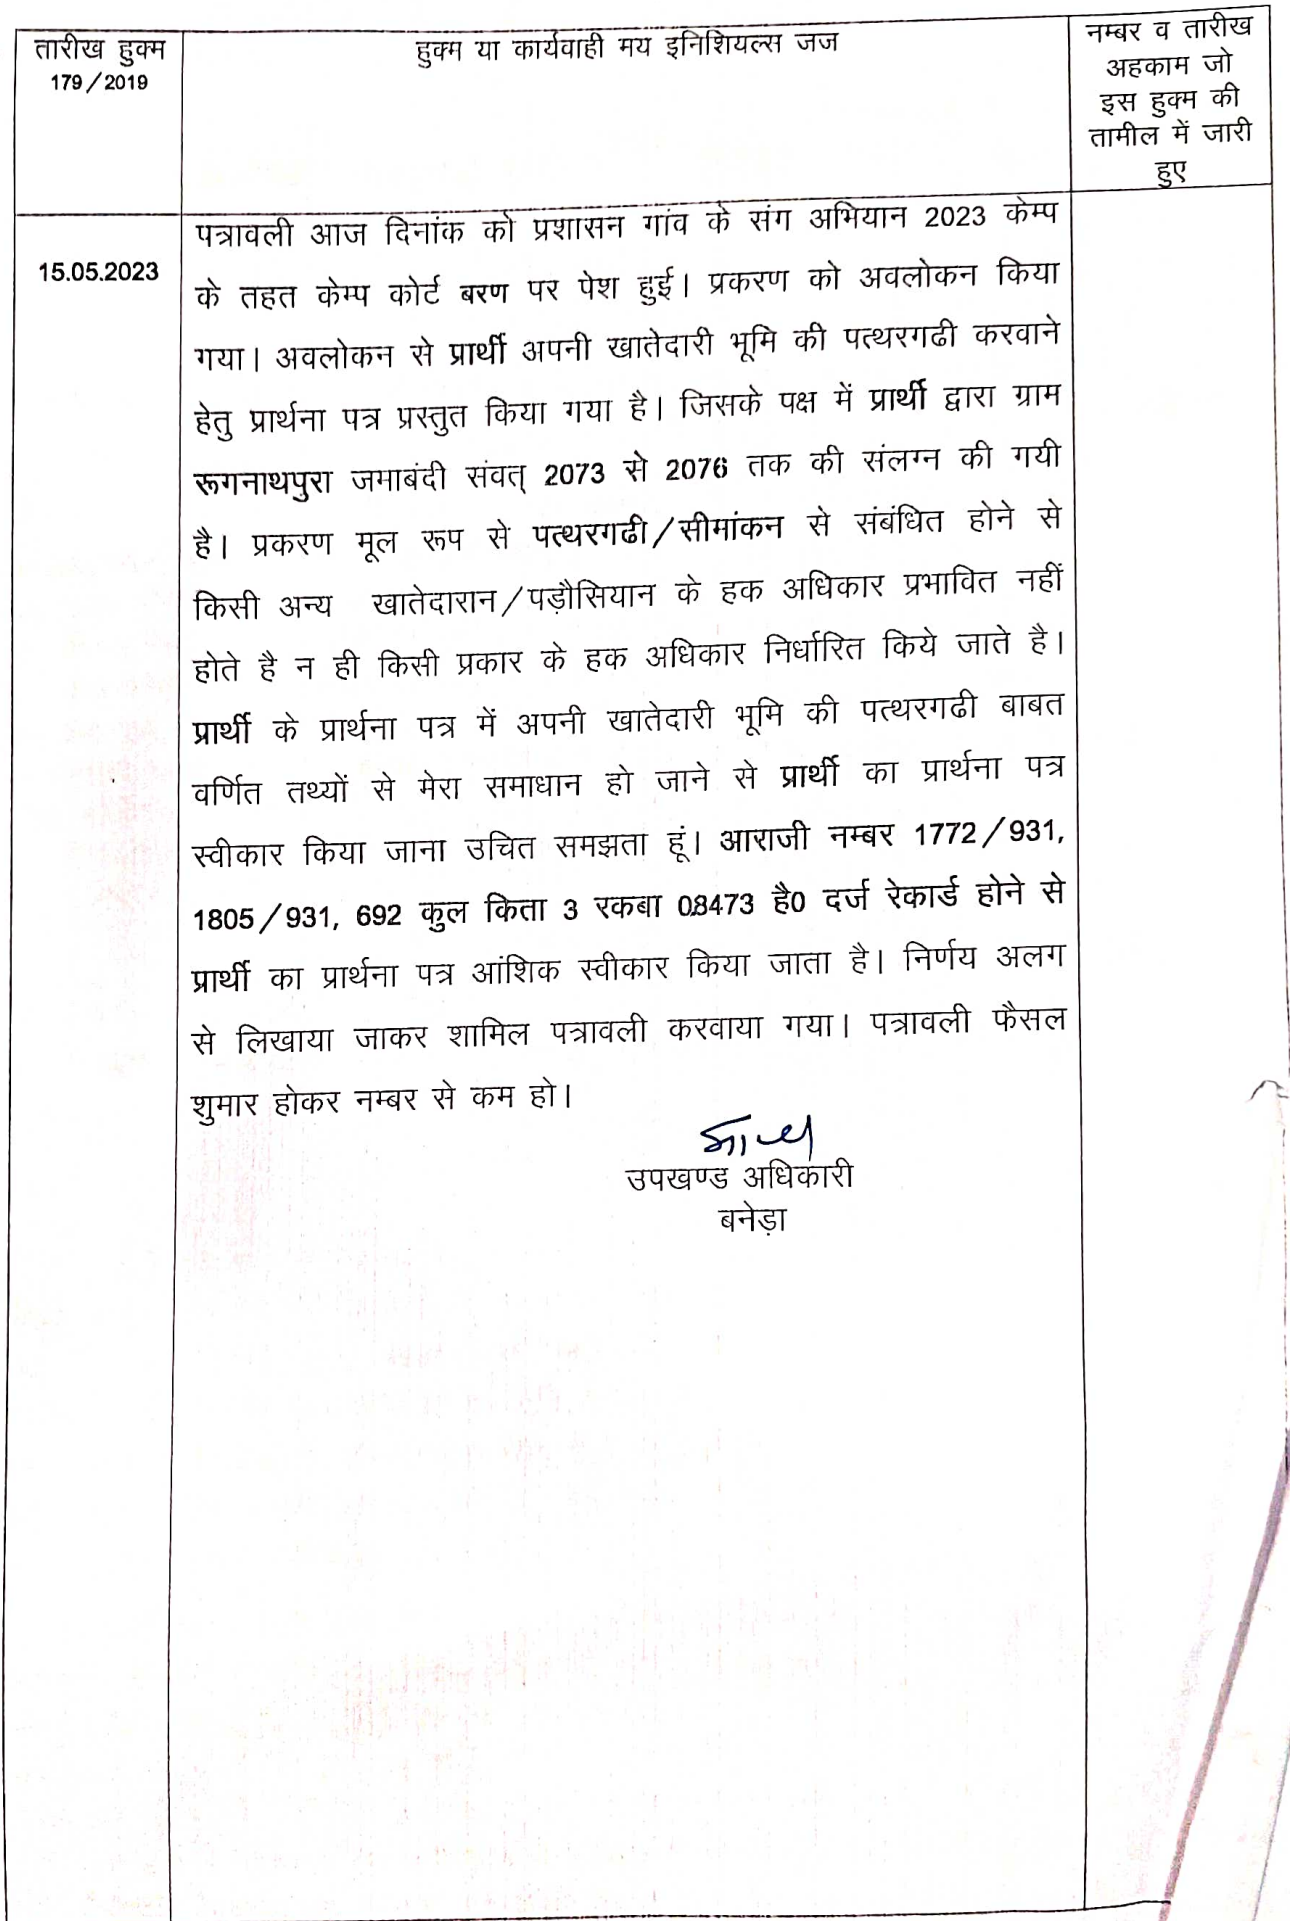 तारीख हुक्म
179/2019
हुक्म या कार्यवाही मय इनिशियल्स जज
नम्बर व तारीख
अहकाम जो
इस हुक्म की
तामील में जारी
हुए
15.05.2023
पत्रावली आज दिनांक को प्रशासन गांव के संग अभियान 2023 केम्प
के तहत केम्प कोर्ट बरण पर पेश हुई। प्रकरण को अवलोकन किया
गया। अवलोकन से प्रार्थी अपनी खातेदारी भूमि की पत्थरगढी करवाने
हेतु प्रार्थना पत्र प्रस्तुत किया गया है। जिसके पक्ष में प्रार्थी द्वारा ग्राम
रूगनाथपुरा जमाबंदी संवत् 2073 से 2076 तक की संलग्न की गयी
है। प्रकरण मूल रूप से पत्थरगढी/सीमांकन से संबंधित होने से
किसी अन्य खातेदारान/पड़ौसियान के हक अधिकार प्रभावित नहीं
होते है न ही किसी प्रकार के हक अधिकार निर्धारित किये जाते है।
प्रार्थी के प्रार्थना पत्र में अपनी खातेदारी भूमि की पत्थरगढी बाबत
वर्णित तथ्यों से मेरा समाधान हो जाने से प्रार्थी का प्रार्थना पत्र
स्वीकार किया जाना उचित समझता हूं। आराजी नम्बर 1772/931,
1805/931, 692 कुल किता 3 रकबा 0.8473 है0 दर्ज रेकार्ड होने से
प्रार्थी का प्रार्थना पत्र आंशिक स्वीकार किया जाता है। निर्णय अलग
से लिखाया जाकर शामिल पत्रावली करवाया गया। पत्रावली फैसल
शुमार होकर नम्बर से कम हो।
उपखण्ड अधिकारी
बनेड़ा